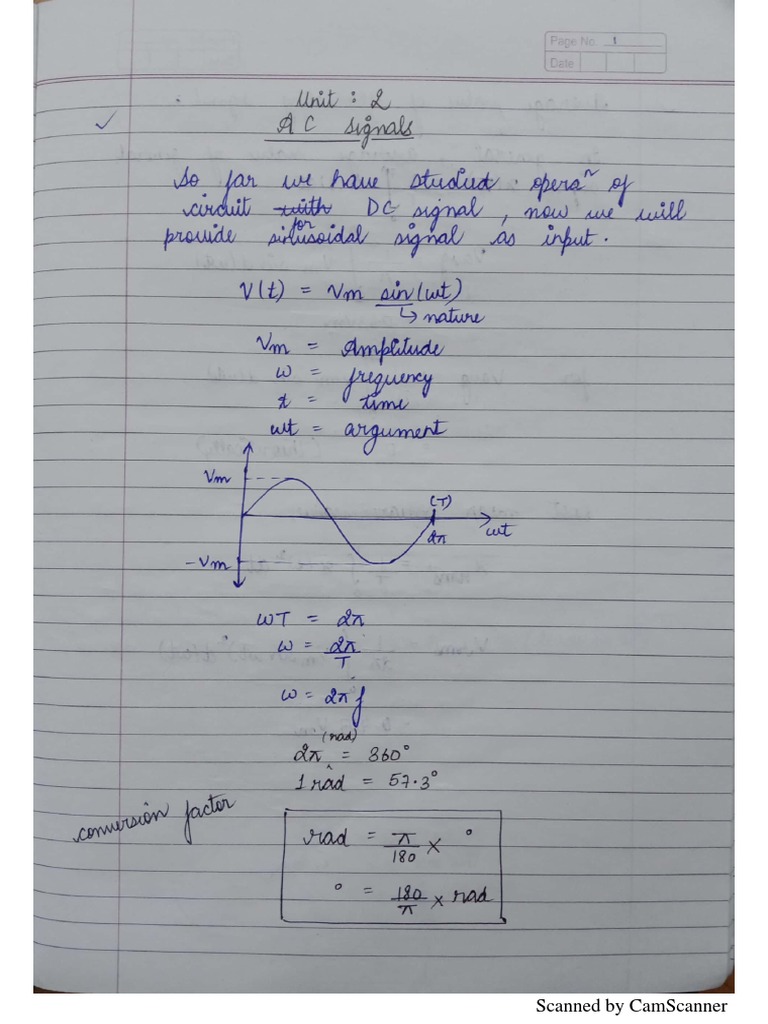 Page No. 1
Date
Unit : 2
AC signals
So far we have studied operaⁿ of
circuit with for DC signal, now we will
provide sinusoidal signal as input.
V(t) = Vm sin(ωt)
↳ nature
Vm = Amplitude
ω = frequency
t = time
ωt = argument
Vm
(T)
2π
ωt
-Vm
ωT = 2π
ω = 2π/T
ω = 2πf
2π (rad) = 360°
1 rad = 57.3°
conversion factor
rad = π/180 × °
° = 180/π × rad
Scanned by CamScanner